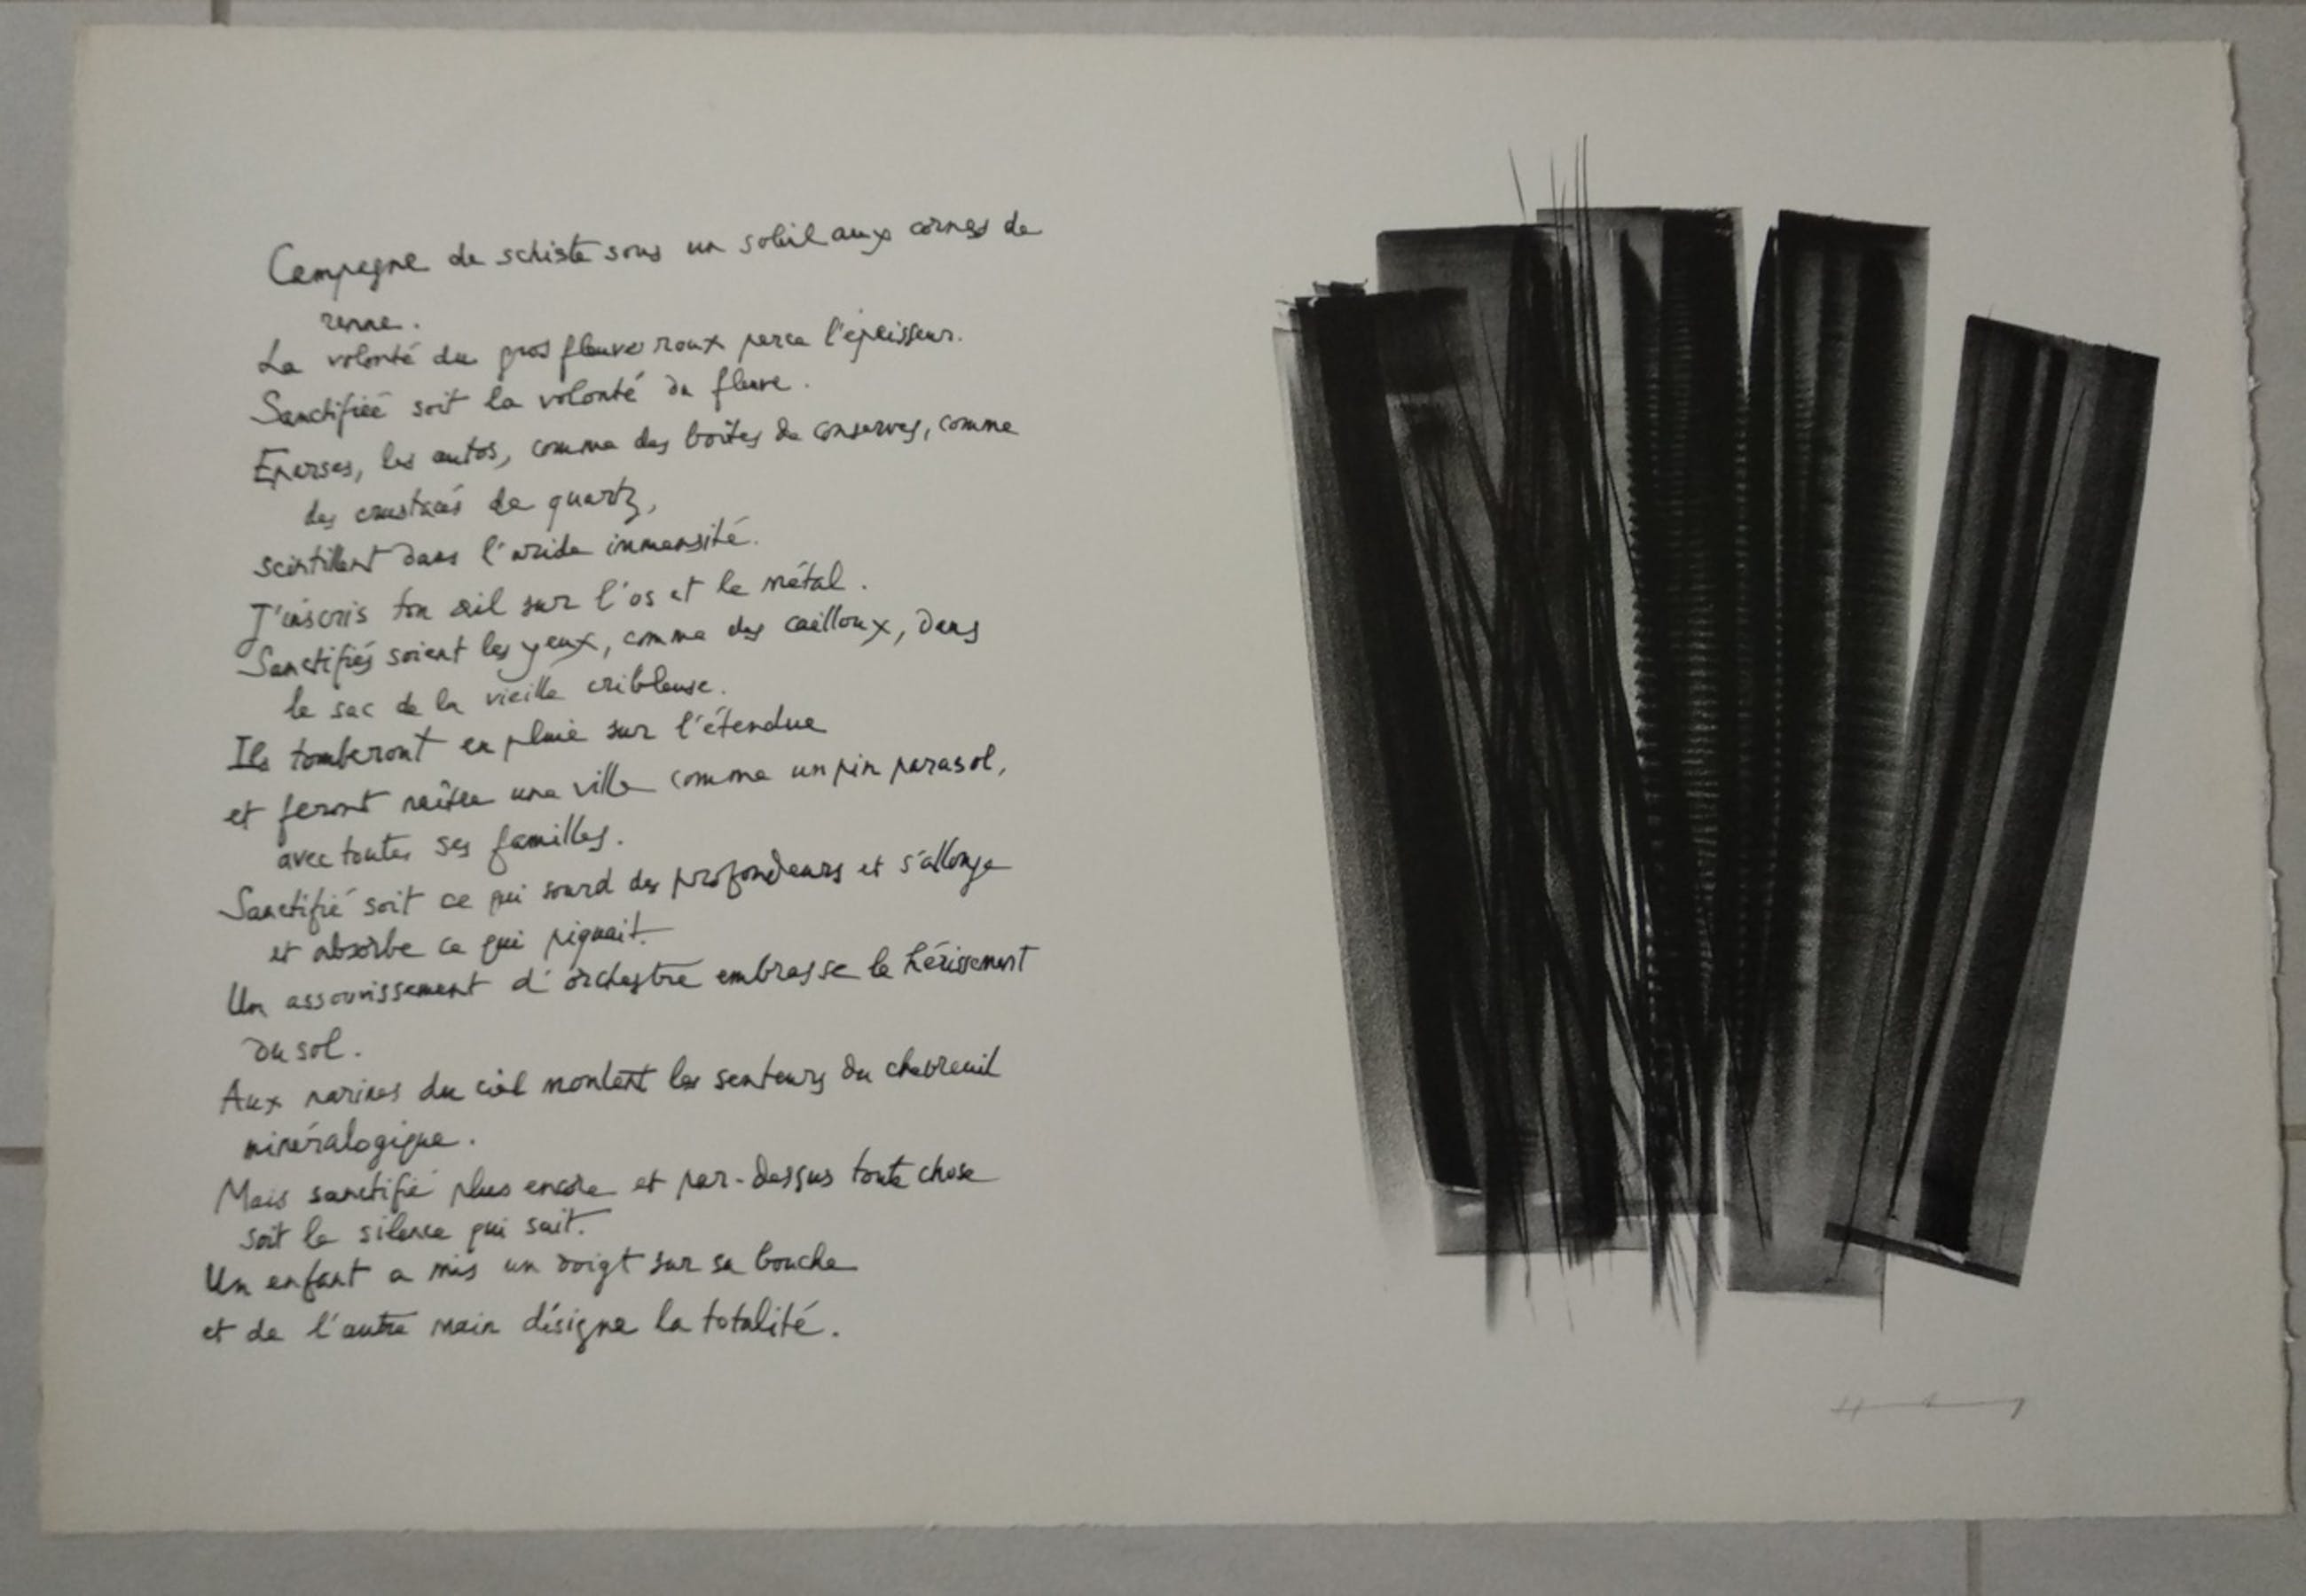 Campagne de schiste sous un soleil aux cornes de
renne.
La volonté du gros fleuve roux perce l'épaisseur.
Sanctifiée soit la volonté du fleuve.
Éparses, les autos, comme des boîtes de conserves, comme
des crustacés de quartz,
scintillent dans l'aride immensité.
J'inscris ton œil sur l'os et le métal.
Sanctifiés soient les yeux, comme des cailloux, dans
le sac de la vieille cribleuse.
Ils tomberont en pluie sur l'étendue
et feront naître une ville comme un pin parasol,
avec toutes ses familles.
Sanctifié soit ce qui sourd des profondeurs et s'allonge
et absorbe ce qui piquait.
Un assouvissement d'orchestre embrasse le hérissement
du sol.
Aux narines du ciel montent les senteurs du chevreuil
minéralogique.
Mais sanctifié plus encore et par-dessus toute chose
soit le silence qui sait.
Un enfant a mis un doigt sur sa bouche
et de l'autre main désigne la totalité.